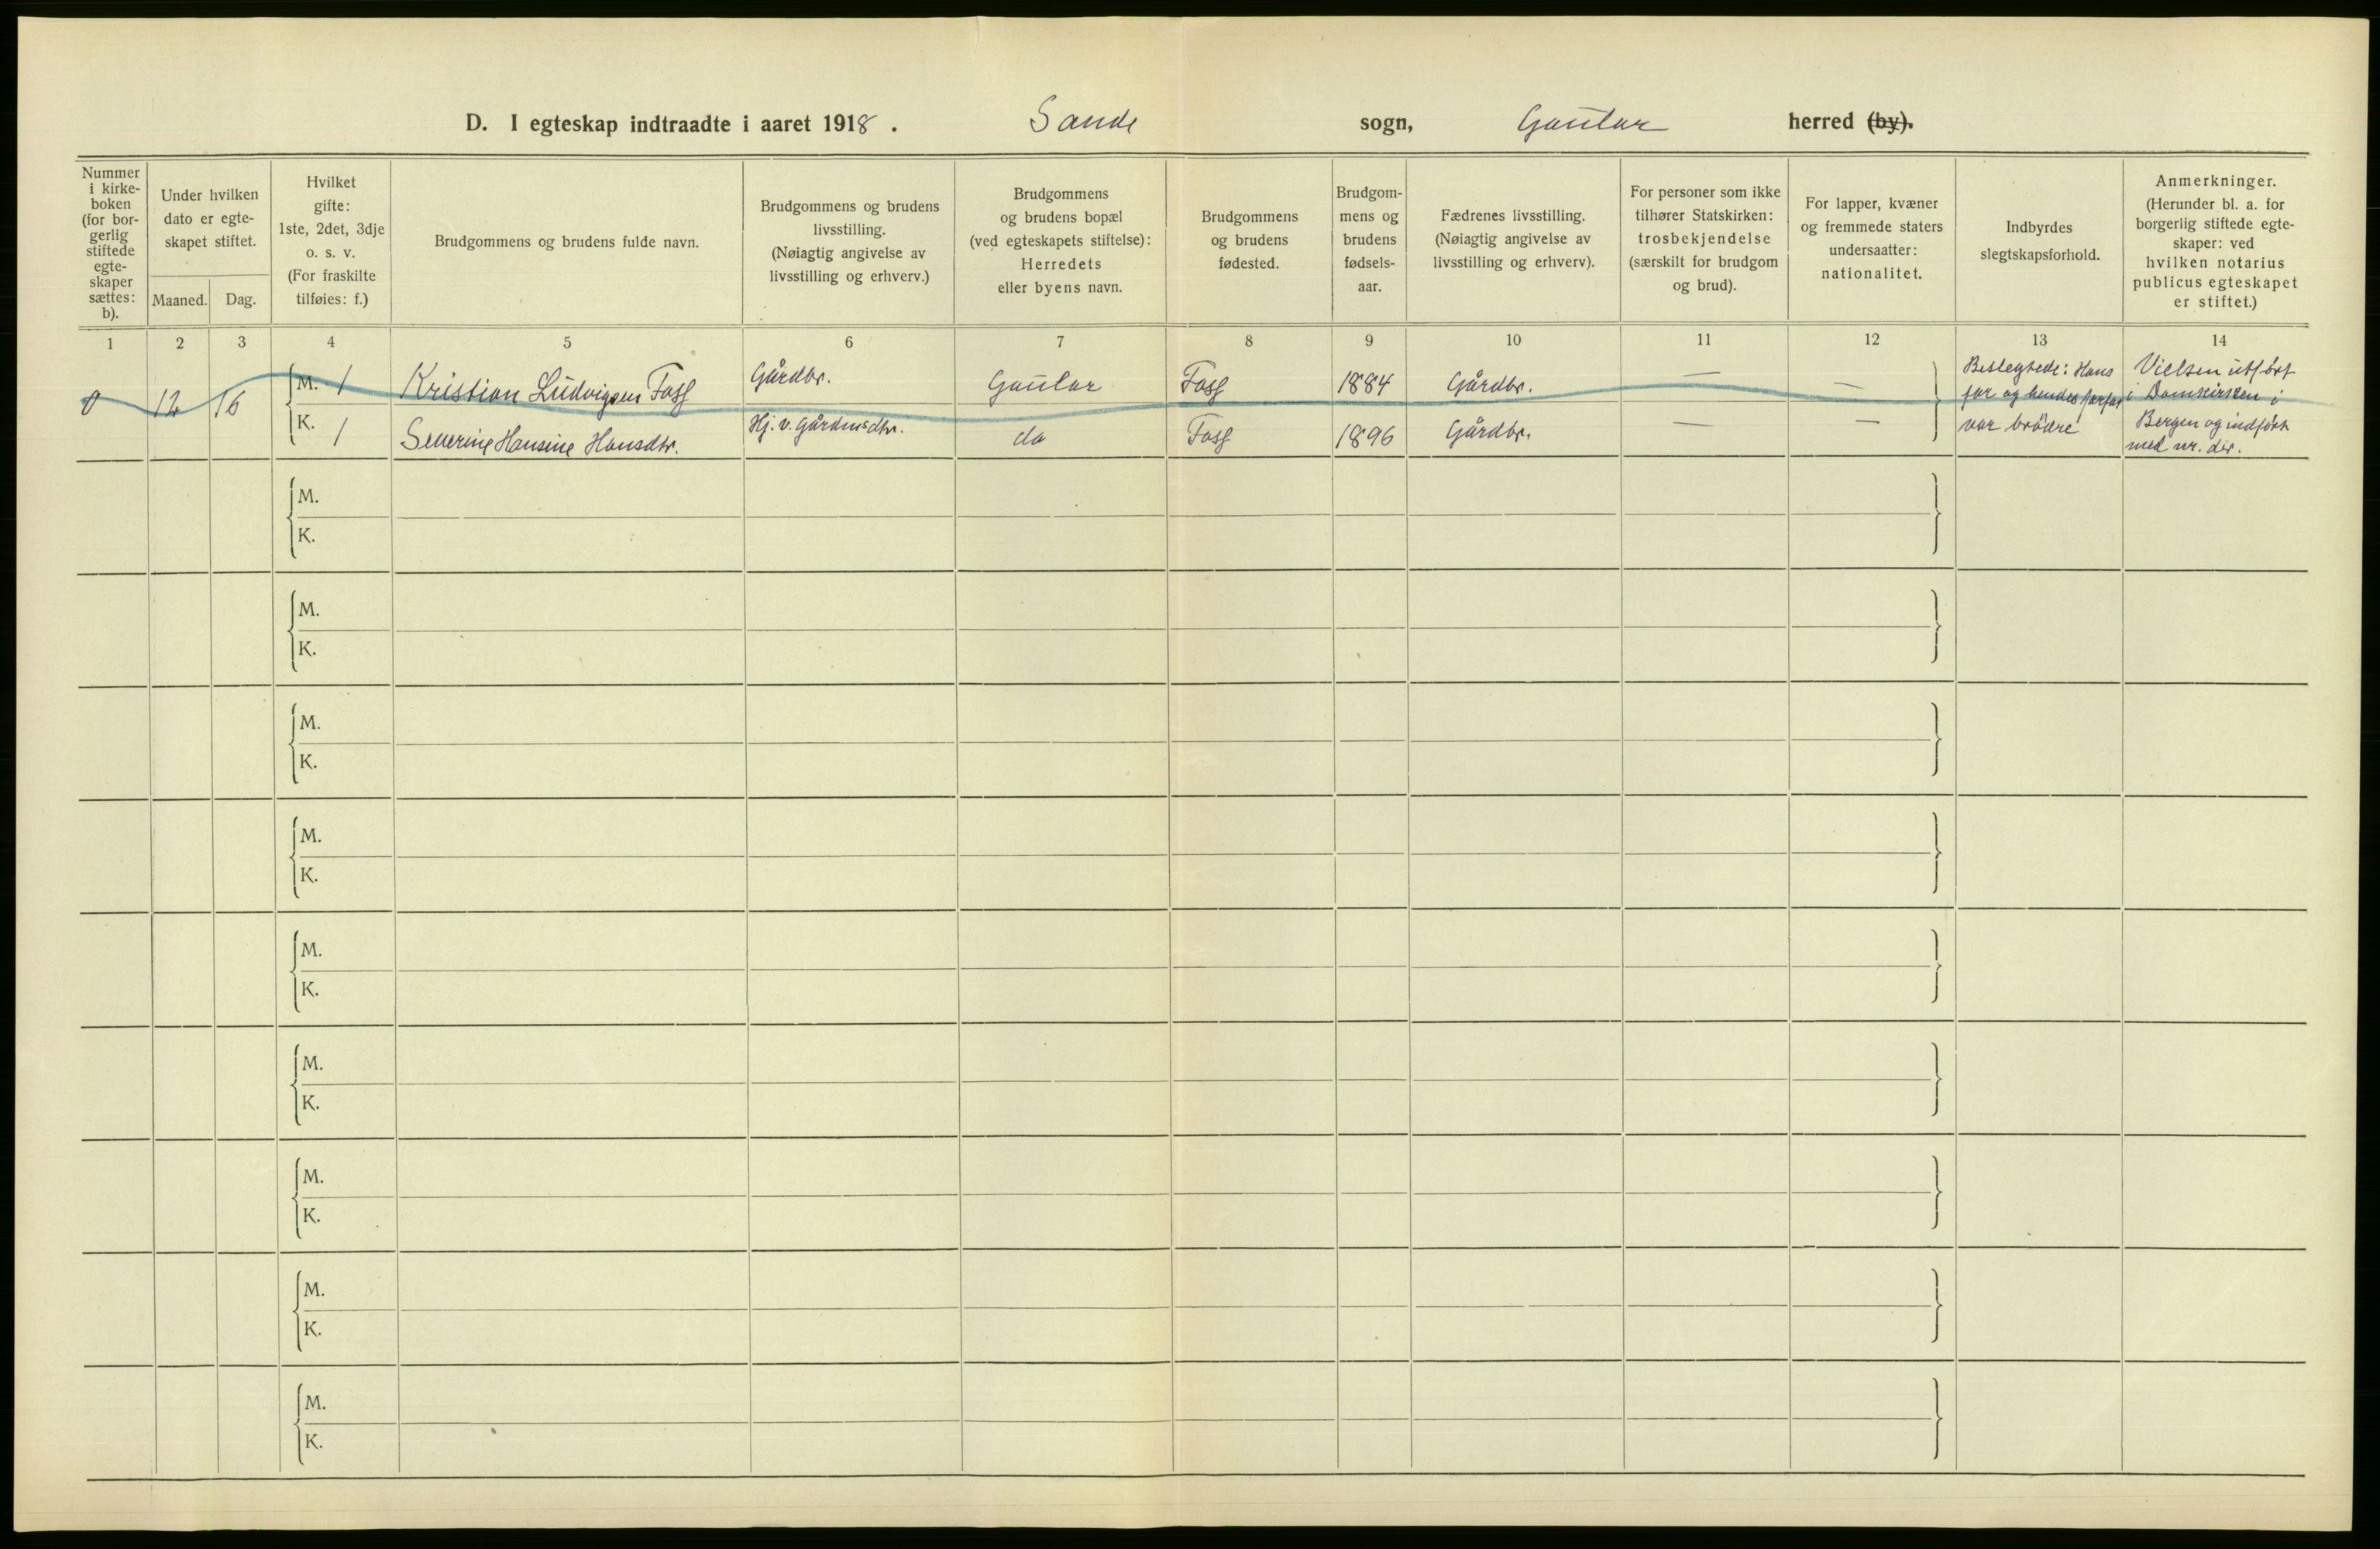 D. I egteskap indtraadte i aaret 1918. Sande sogn, Gaular herred (by).
Nummer i kirke-boken (for bor-gerlig stiftede egte-skaper sættes: b).
Under hvilken dato er egte-skapet stiftet.
Maaned. Dag.
Hvilket gifte: 1ste, 2det, 3dje o. s. v. (For fraskilte tilføies: f.)
Brudgommens og brudens fulde navn.
Brudgommens og brudens livsstilling. (Nøiagtig angivelse av livsstilling og erhverv.)
Brudgommens og brudens bopæl (ved egteskapets stiftelse): Herredets eller byens navn.
Brudgommens og brudens fødested.
Brudgom-mens og brudens fødsels-aar.
Fædrenes livsstilling. (Nøiagtig angivelse av livsstilling og erhverv).
For personer som ikke tilhører Statskirken: trosbekjendelse (særskilt for brudgom og brud).
For lapper, kvæner og fremmede staters undersaatter: nationalitet.
Indbyrdes slegtskapsforhold.
Anmerkninger. (Herunder bl. a. for borgerlig stiftede egte-skaper: ved hvilken notarius publicus egteskapet er stiftet.)
1 2 3 4 5 6 7 8 9 10 11 12 13 14
0 12 16 M. 1 Kristian Ludvigsen Foss Gårdbr. Gaular Foss 1884 Gårdbr. — —
K. 1 Severine Hansine Hansdtr. Hj. v. gårdmsdtr. do Foss 1896 Gårdbr. — —
Beslegtede: Hans
far og hendes farfar
var brödre
Vielsen utført
i Domkirken i
Bergen og indført
med nr. der.
M.
K.
M.
K.
M.
K.
M.
K.
M.
K.
M.
K.
M.
K.
M.
K.
M.
K.